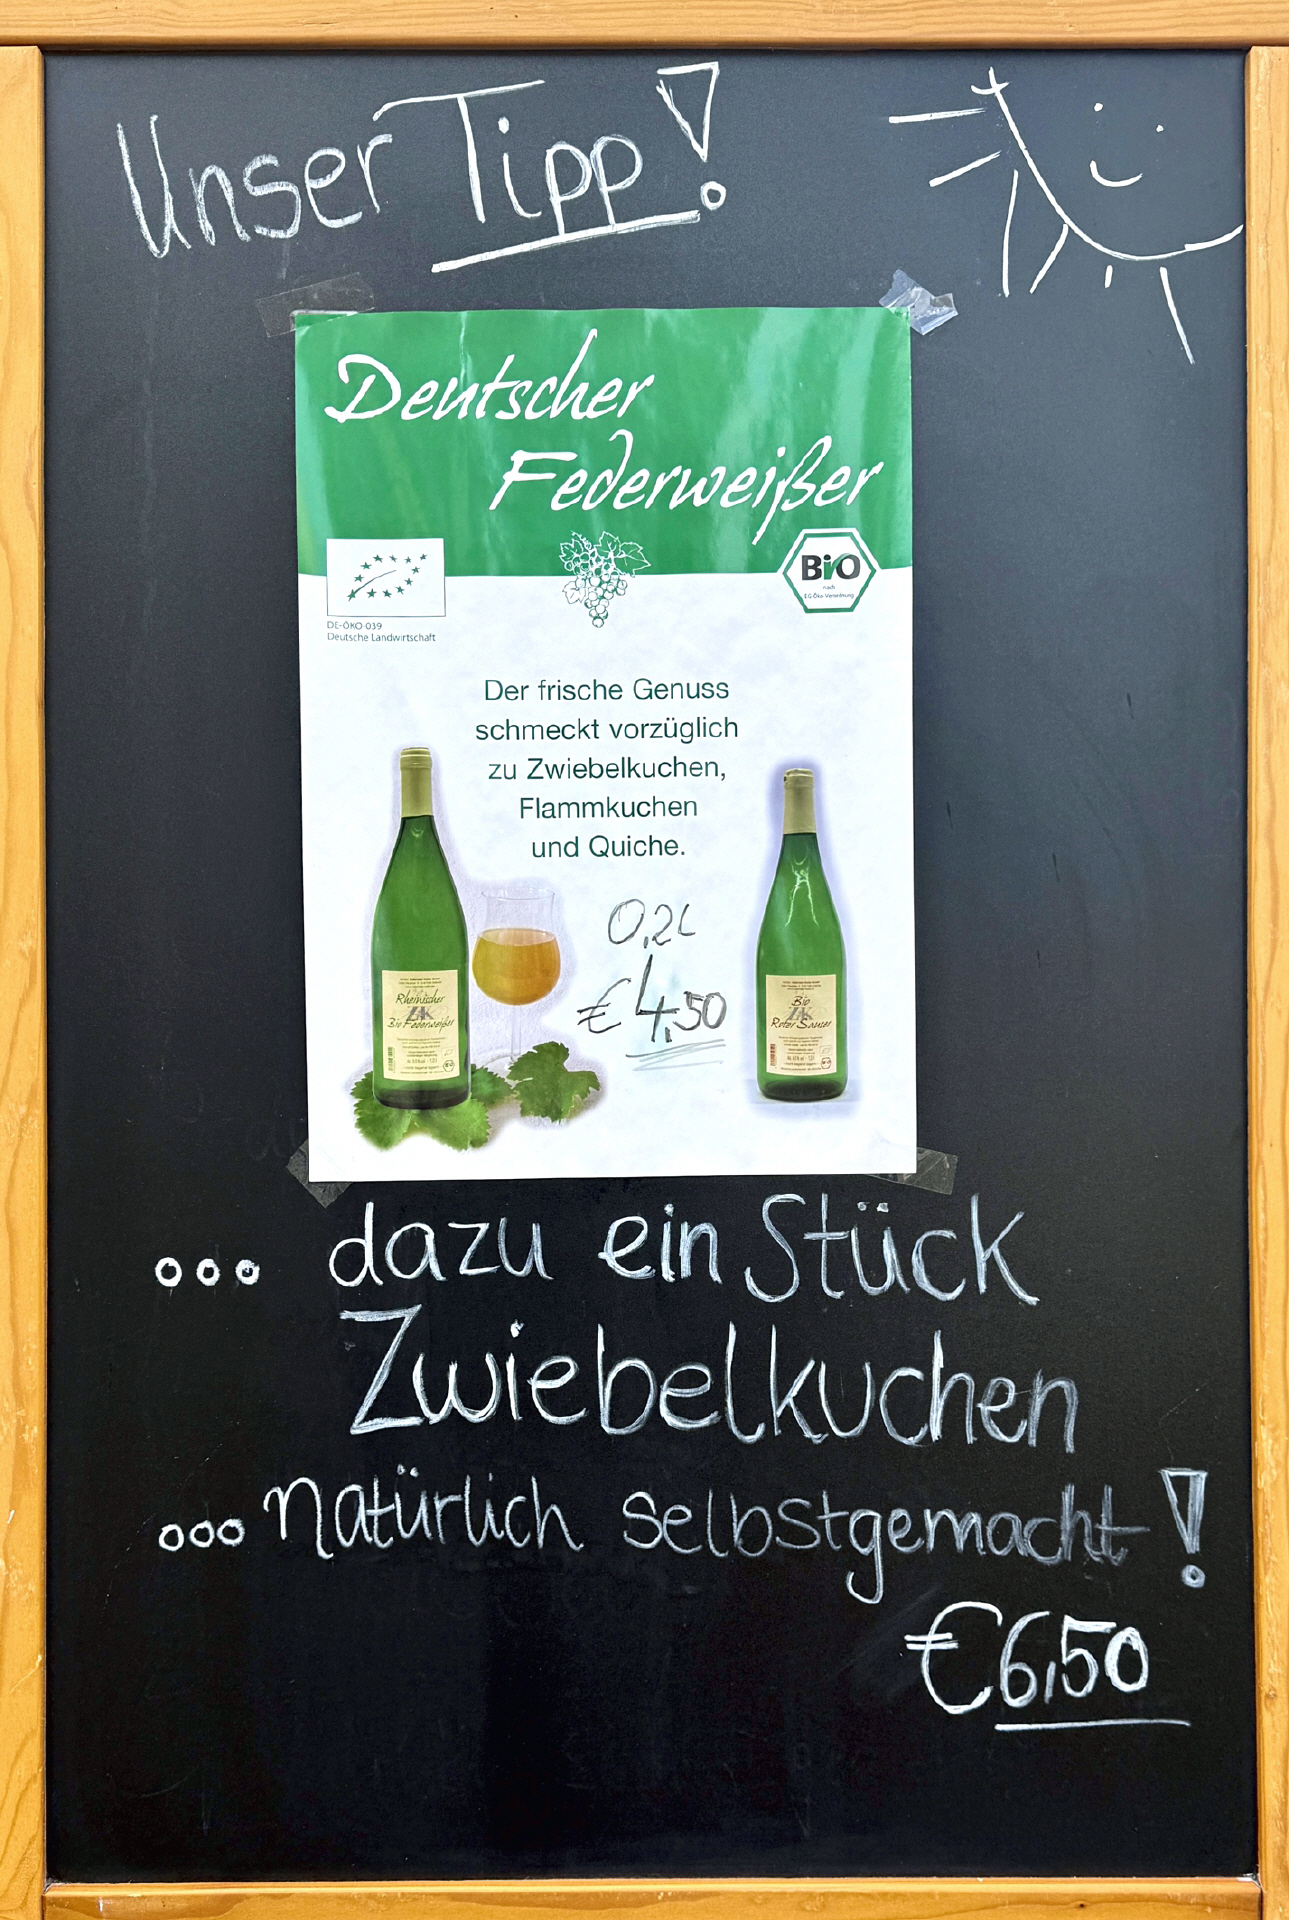 Unser Tipp!
Deutscher
Federweißer
BIO
nach
EG-Öko-Verordnung
DE-ÖKO-039
Deutsche Landwirtschaft
Der frische Genuss
schmeckt vorzüglich
zu Zwiebelkuchen,
Flammkuchen
und Quiche.
0,2L
€ 4,50
Rheinischer
Bio Federweißer
Bio
Roter Sauser
... dazu ein Stück
Zwiebelkuchen
... natürlich selbstgemacht!
€6,50